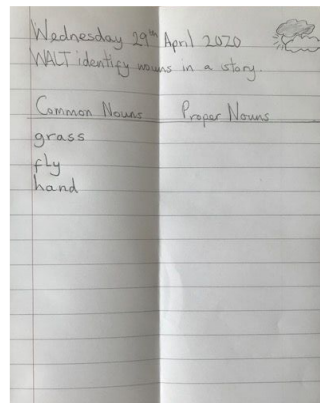 Wednesday 29th April 2020
WALT identify nouns in a story.
Common Nouns Proper Nouns
grass
fly
hand